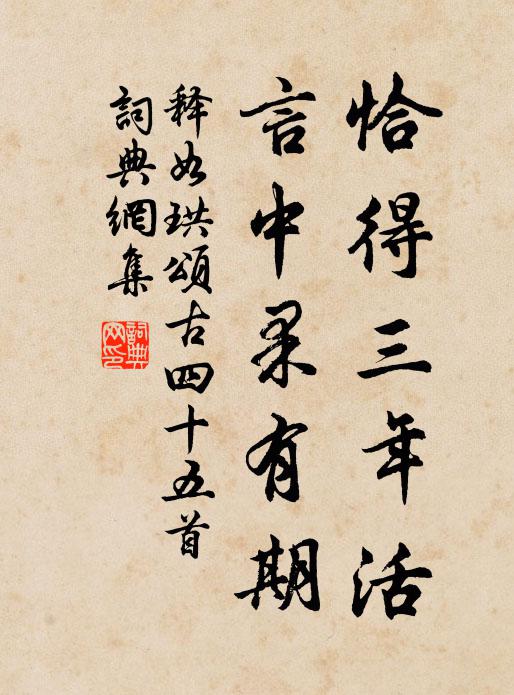 恰得三年活
言中果有期
释如珙頌古四十五首
詞典網集
詞典網印